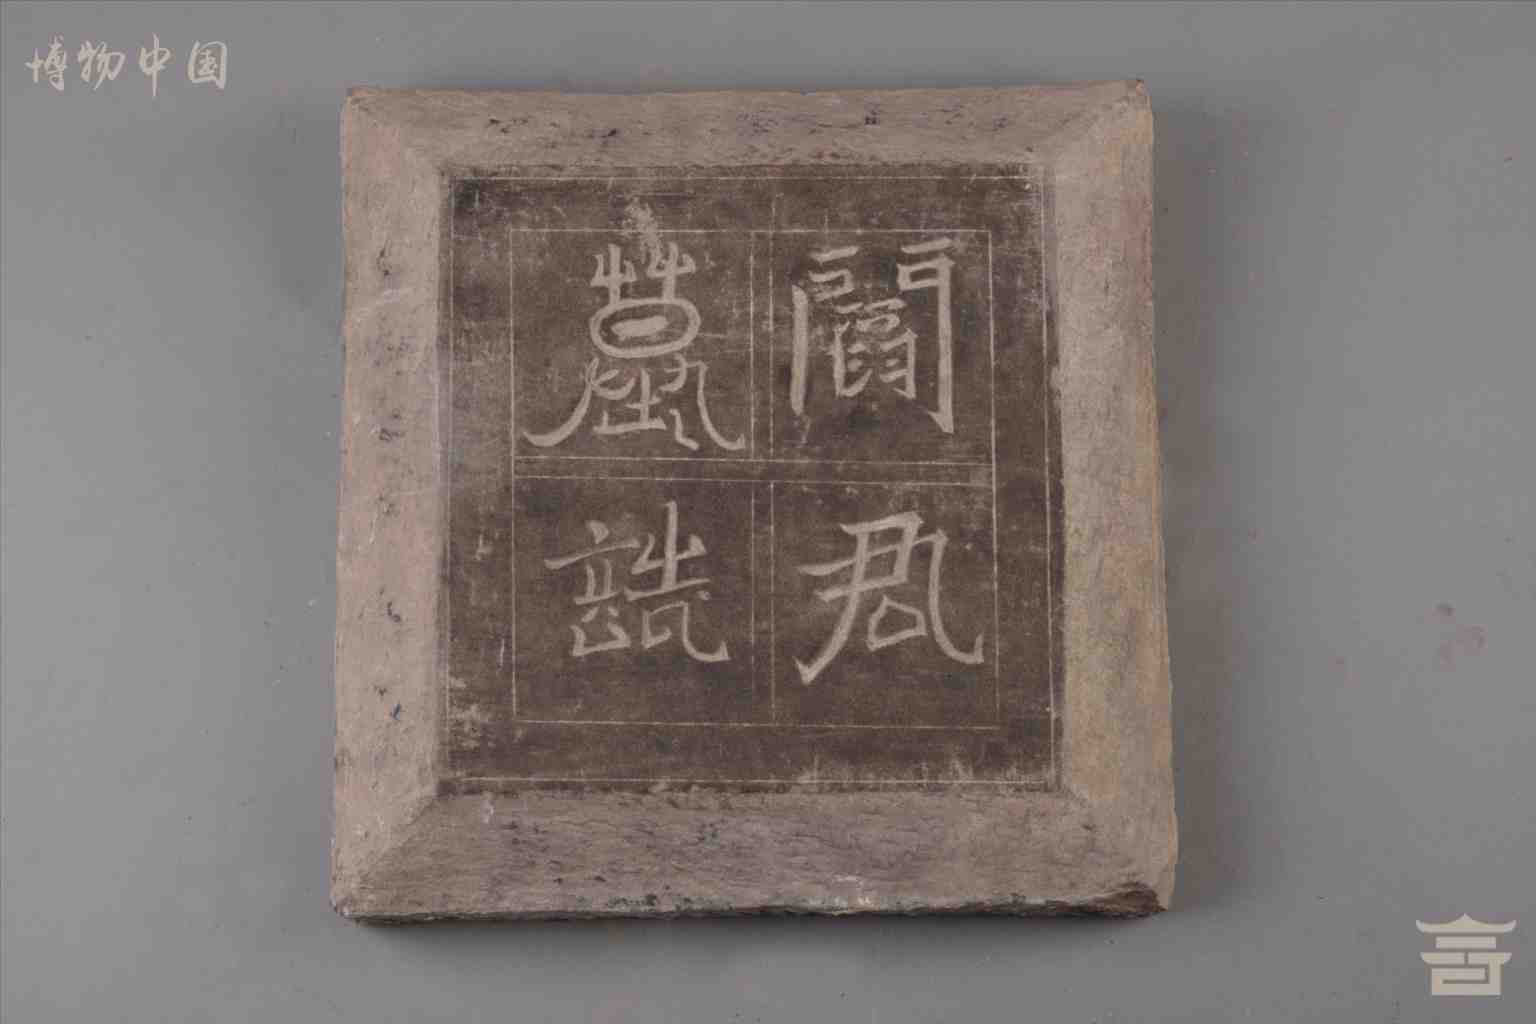 博物中国
閻君
墓誌